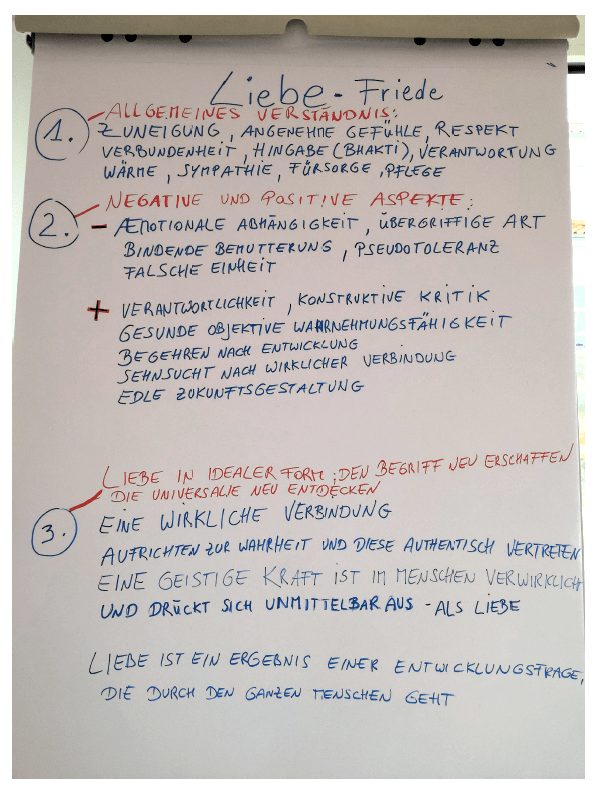 Liebe - Friede
1. ALLGEMEINES VERSTÄNDNIS:
ZUNEIGUNG, ANGENEHME GEFÜHLE, RESPEKT
VERBUNDENHEIT, HINGABE (BHAKTI), VERANTWORTUNG
WÄRME, SYMPATHIE, FÜRSORGE, PFLEGE
2. NEGATIVE UND POSITIVE ASPEKTE:
- ÆMOTIONALE ABHÄNGIGKEIT, ÜBERGRIFFIGE ART
BINDENDE BEMUTTERUNG, PSEUDOTOLERANZ
FALSCHE EINHEIT
+ VERANTWORTLICHKEIT, KONSTRUKTIVE KRITIK
GESUNDE OBJEKTIVE WAHRNEHMUNGSFÄHIGKEIT
BEGEHREN NACH ENTWICKLUNG
SEHNSUCHT NACH WIRKLICHER VERBINDUNG
EDLE ZUKUNFTSGESTALTUNG
3. LIEBE IN IDEALER FORM; DEN BEGRIFF NEU ERSCHAFFEN
DIE UNIVERSALIE NEU ENTDECKEN
EINE WIRKLICHE VERBINDUNG
AUFRICHTEN ZUR WAHRHEIT UND DIESE AUTHENTISCH VERTRETEN
EINE GEISTIGE KRAFT IST IM MENSCHEN VERWIRKLICH
UND DRÜCKT SICH UNMITTELBAR AUS - ALS LIEBE
LIEBE IST EIN ERGEBNIS EINER ENTWICKLUNGSFRAGE,
DIE DURCH DEN GANZEN MENSCHEN GEHT